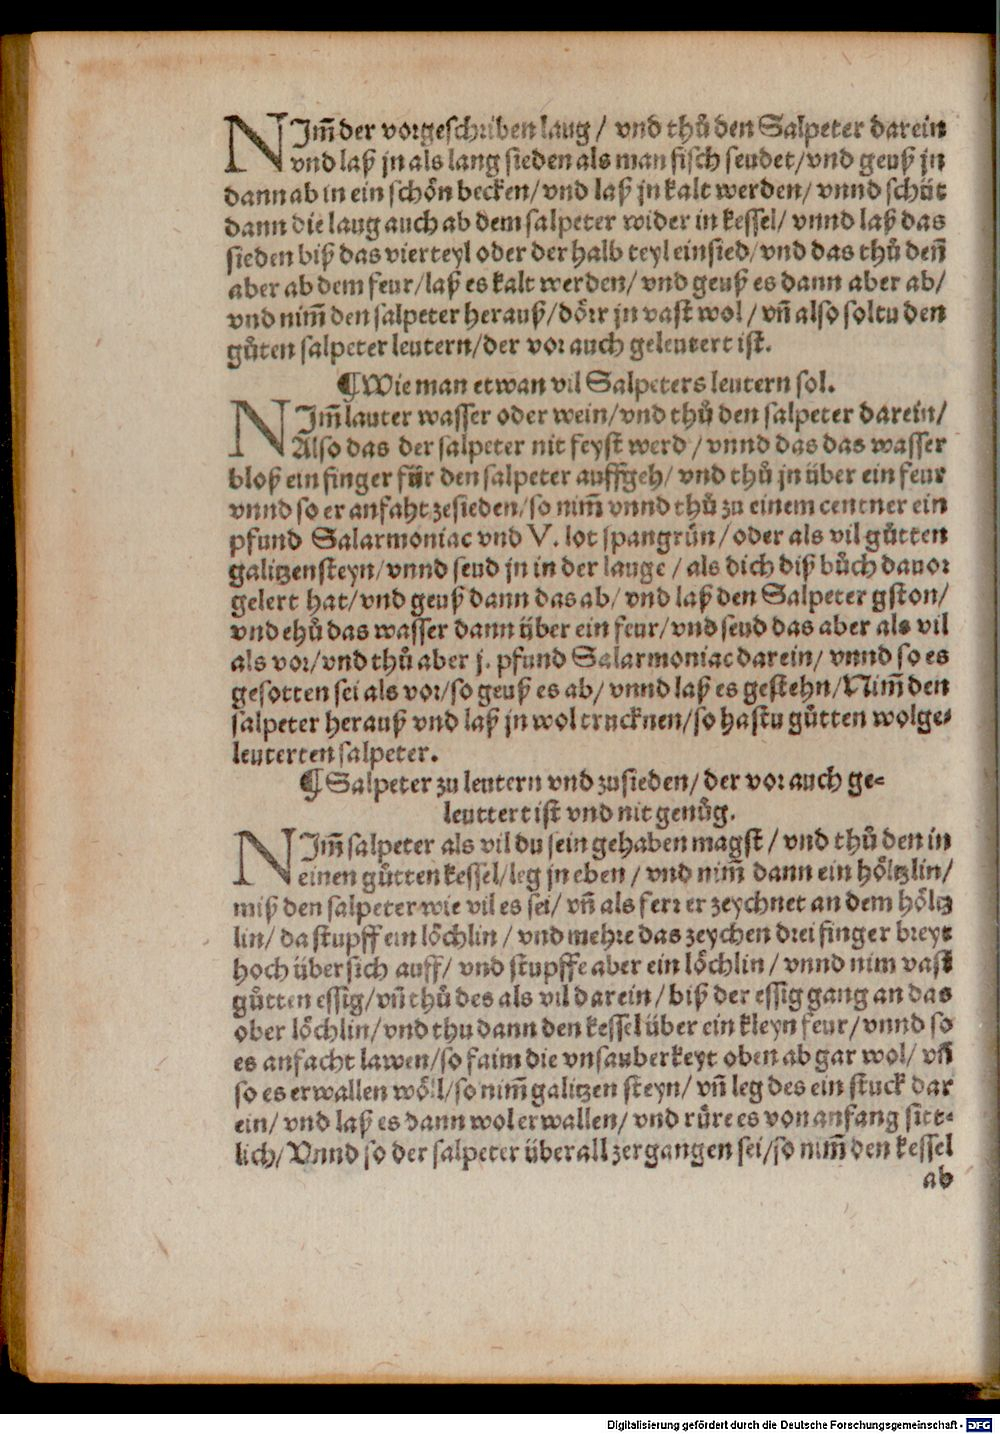 NJm̃ der vorgeschriben laug / vnd thuͦ den Salpeter darein
vnd laß jn als lang sieden als man fisch seudet/vnd geuß jn
dann ab in ein schoͤn becken/vnd laß jn kalt werden/ vnnd schüt
dann die laug auch ab dem salpeter wider in kessel/ vnnd laß das
sieden biß das vierteyl oder der halb teyl einsied/vnd das thuͦ deñ
aber ab dem feur/laß es kalt werden/ vnd geuß es dann aber ab/
vnd nim̃ den salpeter herauß/doͤrr jn vast wol / vñ also soltu den
guͦten salpeter leutern/der vor auch geleutert ist.
¶Wie man etwan vil Salpeters leutern sol.
NJm̃ lauter wasser oder wein/vnd thuͦ den salpeter darein/
Also das der salpeter nit feyst werd / vnnd das das wasser
bloß ein finger für den salpeter auffgeh/ vnd thuͦ jn über ein feur
vnnd so er anfaht zesieden/so nim̃ vnnd thuͦ zu einem centner ein
pfund Salarmoniac vnd V. lot spangruͤn/oder als vil guͦtten
galitzensteyn/vnnd seud jn in der lauge / als dich diß buͦch dauor
gelert hat/vnd geuß dann das ab/ vnd laß den Salpeter gston/
vnd ehuͦ das wasser dann über ein feur/vnd seud das aber als vil
als vor/vnd thuͦ aber j. pfund Salarmoniac darein/ vnnd so es
gesotten sei als vor/so geuß es ab/ vnnd laß es gestehn/Nim̃ den
salpeter herauß vnd laß jn wol trucknen/so hastu guͦtten wolge-
leuterten salpeter.
¶Salpeter zu leutern vnd zusieden/der vor auch ge-
leuttert ist vnd nit genuͦg.
NJm̃ salpeter als vil du sein gehaben magst / vnd thuͦ den in
einen guͦtten kessel/leg jn eben / vnd nim̃ dann ein hoͤltzlin/
miß den salpeter wie vil es sei/ vñ als ferr er zeychnet an dem hoͤltz
lin/ da stupff ein loͤchlin / vnd mehre das zeychen drei finger breyt
hoch übersich auff/ vnd stupffe aber ein loͤchlin / vnnd nim vast
guͦtten essig/vñ thuͦ des als vil darein/ biß der essig gang an das
ober loͤchlin/vnd thu dann den kessel über ein kleyn feur/vnnd so
es anfacht lawen/so faim die vnsauberkeyt oben ab gar wol/ vñ
so es erwallen woͤll/so nim̃ galitzen steyn/ vñ leg des ein stuck dar
ein/ vnd laß es dann wol erwallen/ vnd ruͤre es von anfang sitt-
lich/ Vnnd so der salpeter überall zergangen sei/so nim̃ den kessel
ab
Digitalisierung gefördert durch die Deutsche Forschungsgemeinschaft - DFG